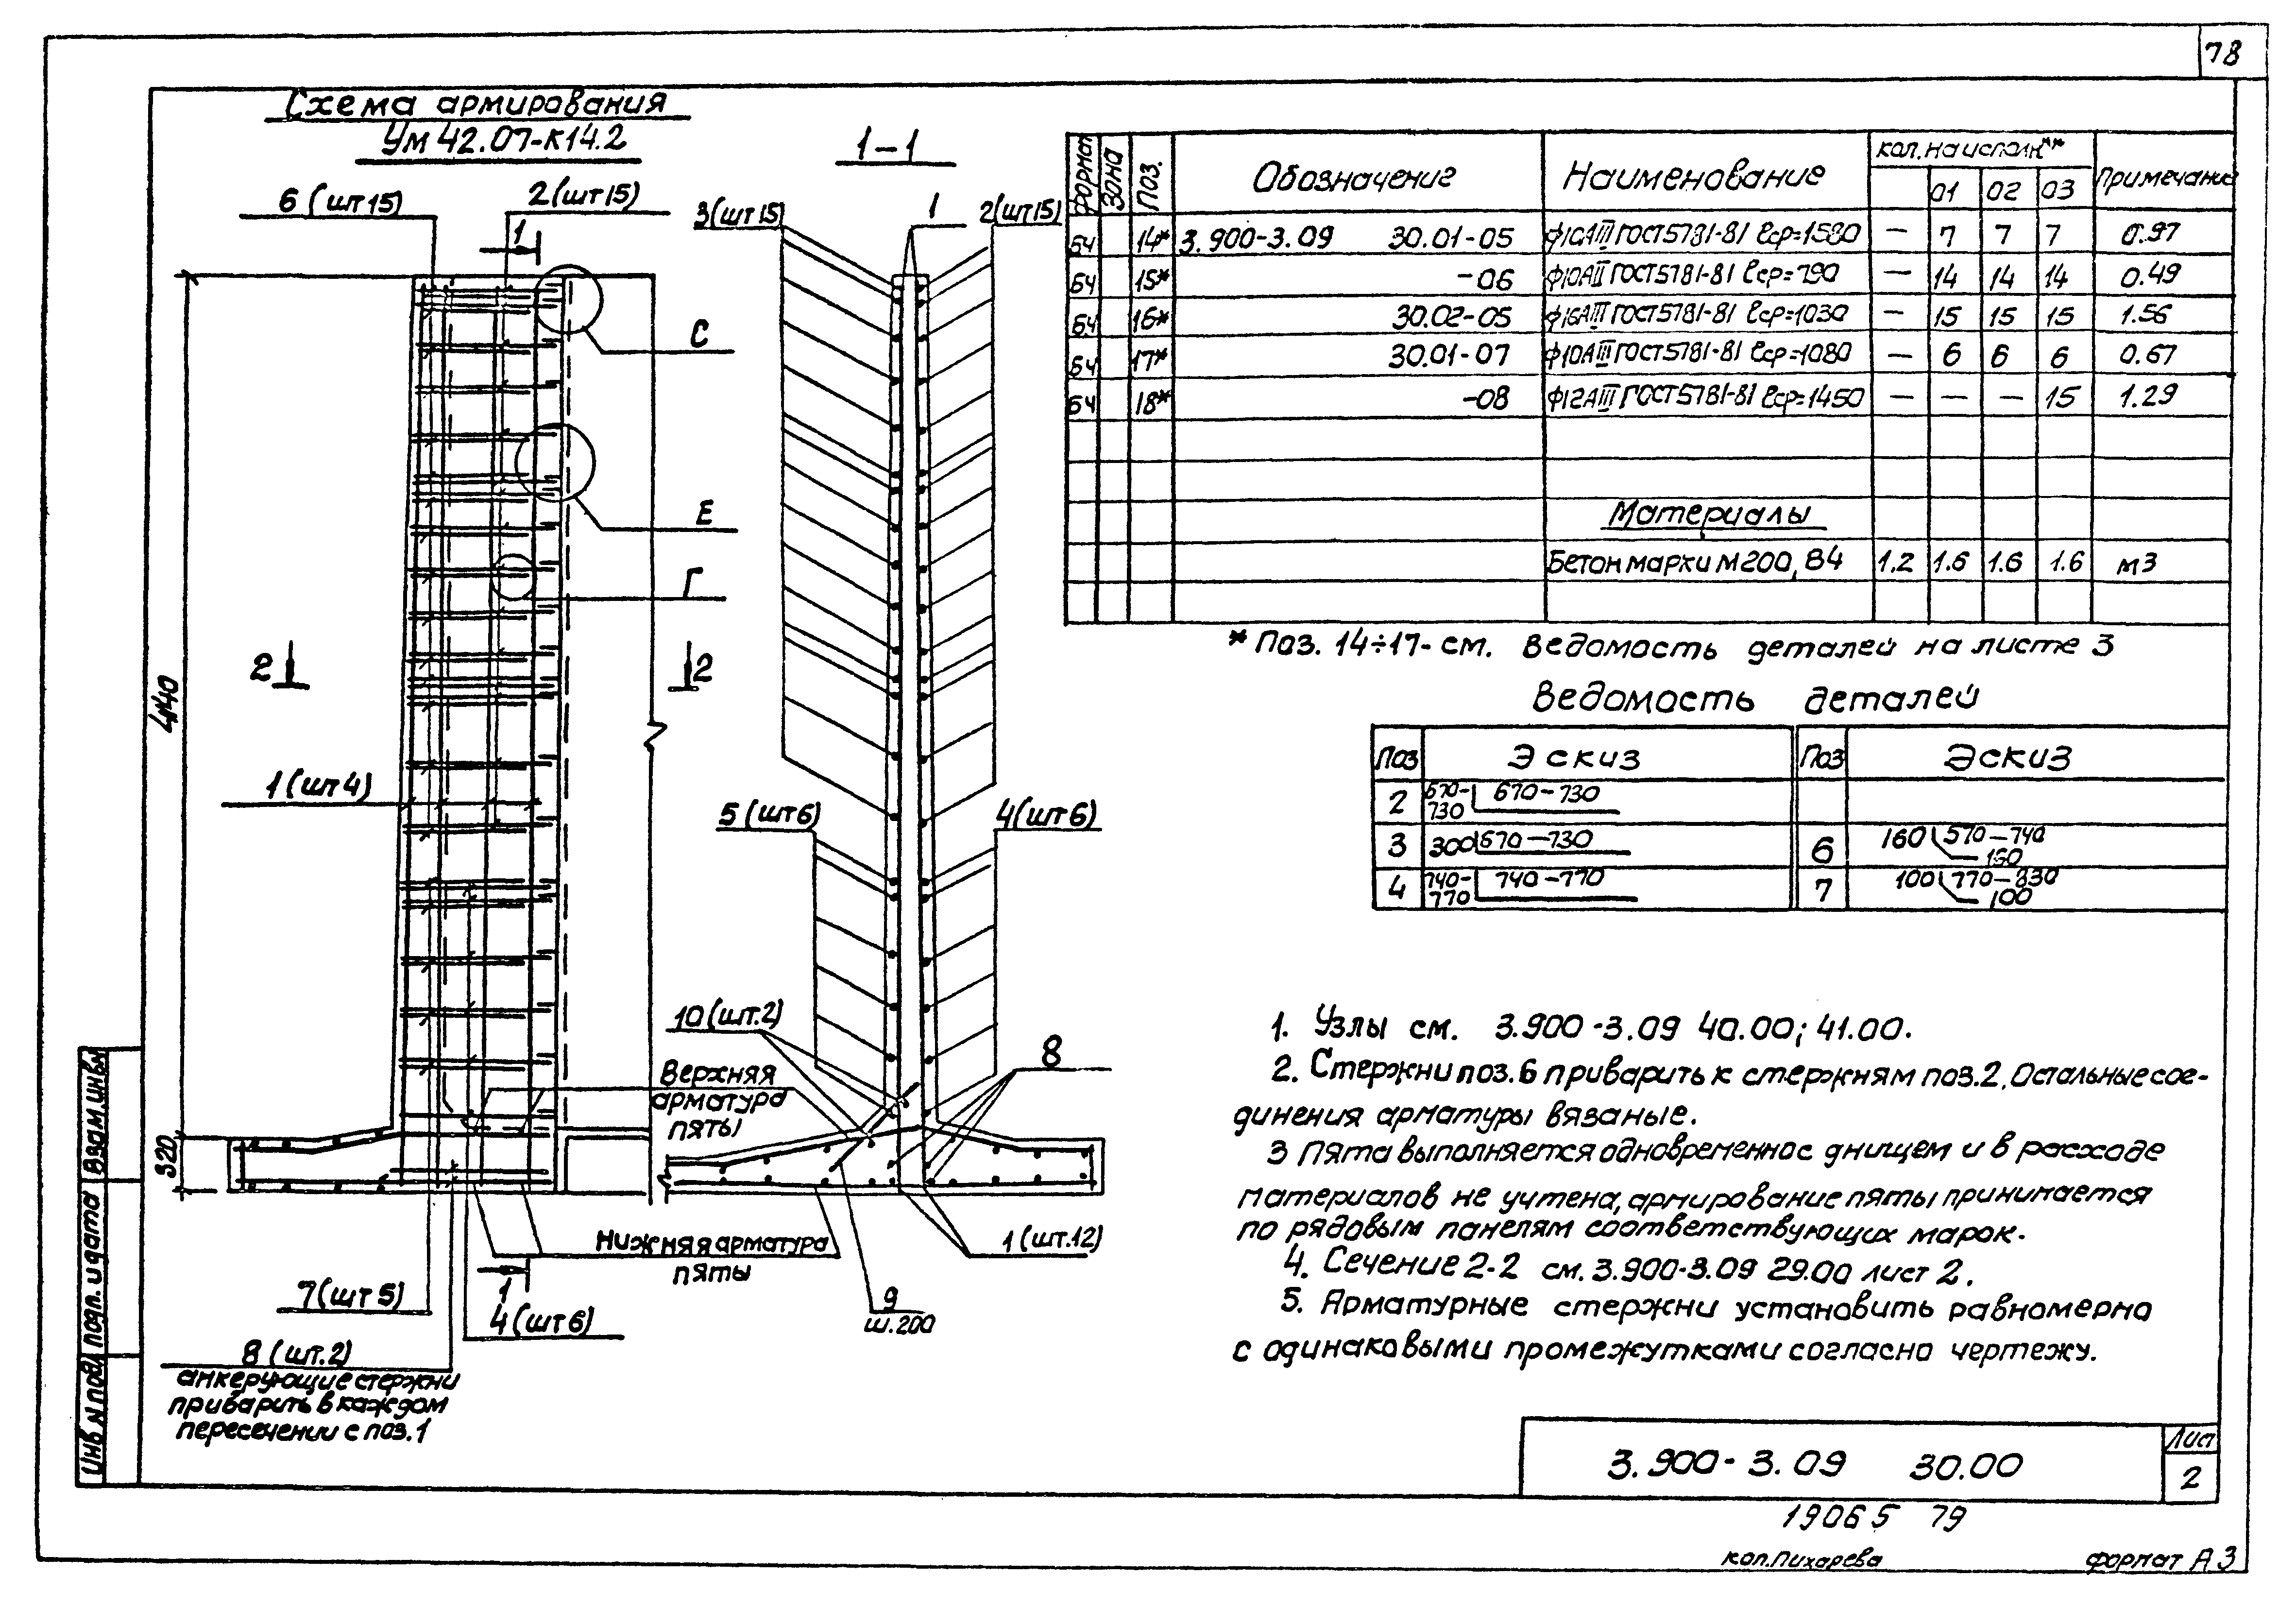 78
Схема армирования
Ум 42.07-К14.2
1-1
6 (шт 15)
2 (шт 15)
1
3 (шт 15)
1
2 (шт 15)
С
Е
Г
2
2
4140
1 (шт 4)
5 (шт 6)
4 (шт 6)
10 (шт. 2)
8
Верхняя
арматура
пяты
320
Нижняя арматура
пяты
1 (шт. 12)
1
7 (шт 5)
4 (шт 6)
9
ш. 200
8 (шт. 2)
анкерующие стержни
приварить в каждом
пересечении с поз. 1
Формат Зона Поз. Обозначение Наименование Кол. на исполн** Примечание
01 02 03
БЧ 14* 3.900-3.09 30.01-05 ф10АIII ГОСТ 5781-81 ℓср=1580 — 7 7 7 0.97
БЧ 15* -06 ф10АIII ГОСТ 5781-81 ℓср=790 — 14 14 14 0.49
БЧ 16* 30.02-05 ф16АIII ГОСТ 5781-81 ℓср=1030 — 15 15 15 1.56
БЧ 17* 30.01-07 ф10АIII ГОСТ 5781-81 ℓср=1080 — 6 6 6 0.67
БЧ 18* -08 ф12АIII ГОСТ 5781-81 ℓср=1450 — — — 15 1.29
Материалы
Бетон марки М200, В4 1.2 1.6 1.6 1.6 м3
* Поз. 14÷17- см. ведомость деталей на листе 3
Ведомость деталей
Поз Эскиз Поз Эскиз
2 670-730 670-730
3 300 670-730 6 160 570-740 160
4 740-770 740-770 7 100 770-830 100
1. Узлы см. 3.900-3.09 40.00; 41.00.
2. Стержни поз. 6 приварить к стержням поз. 2. Остальные сое-
динения арматуры вязаные.
3 Пята выполняется одновременно с днищем и в расходе
материалов не учтена, армирование пяты принимается
по рядовым панелям соответствующих марок.
4. Сечение 2-2 см. 3.900-3.09 29.00 лист 2.
5. Арматурные стержни установить равномерно
с одинаковыми промежутками согласно чертежу.
Взам. инв. №
Подп. и дата
Инв. № подл.
3.900-3.09 30.00
Лист
2
19065 79
кол. Пихарева
формат А3